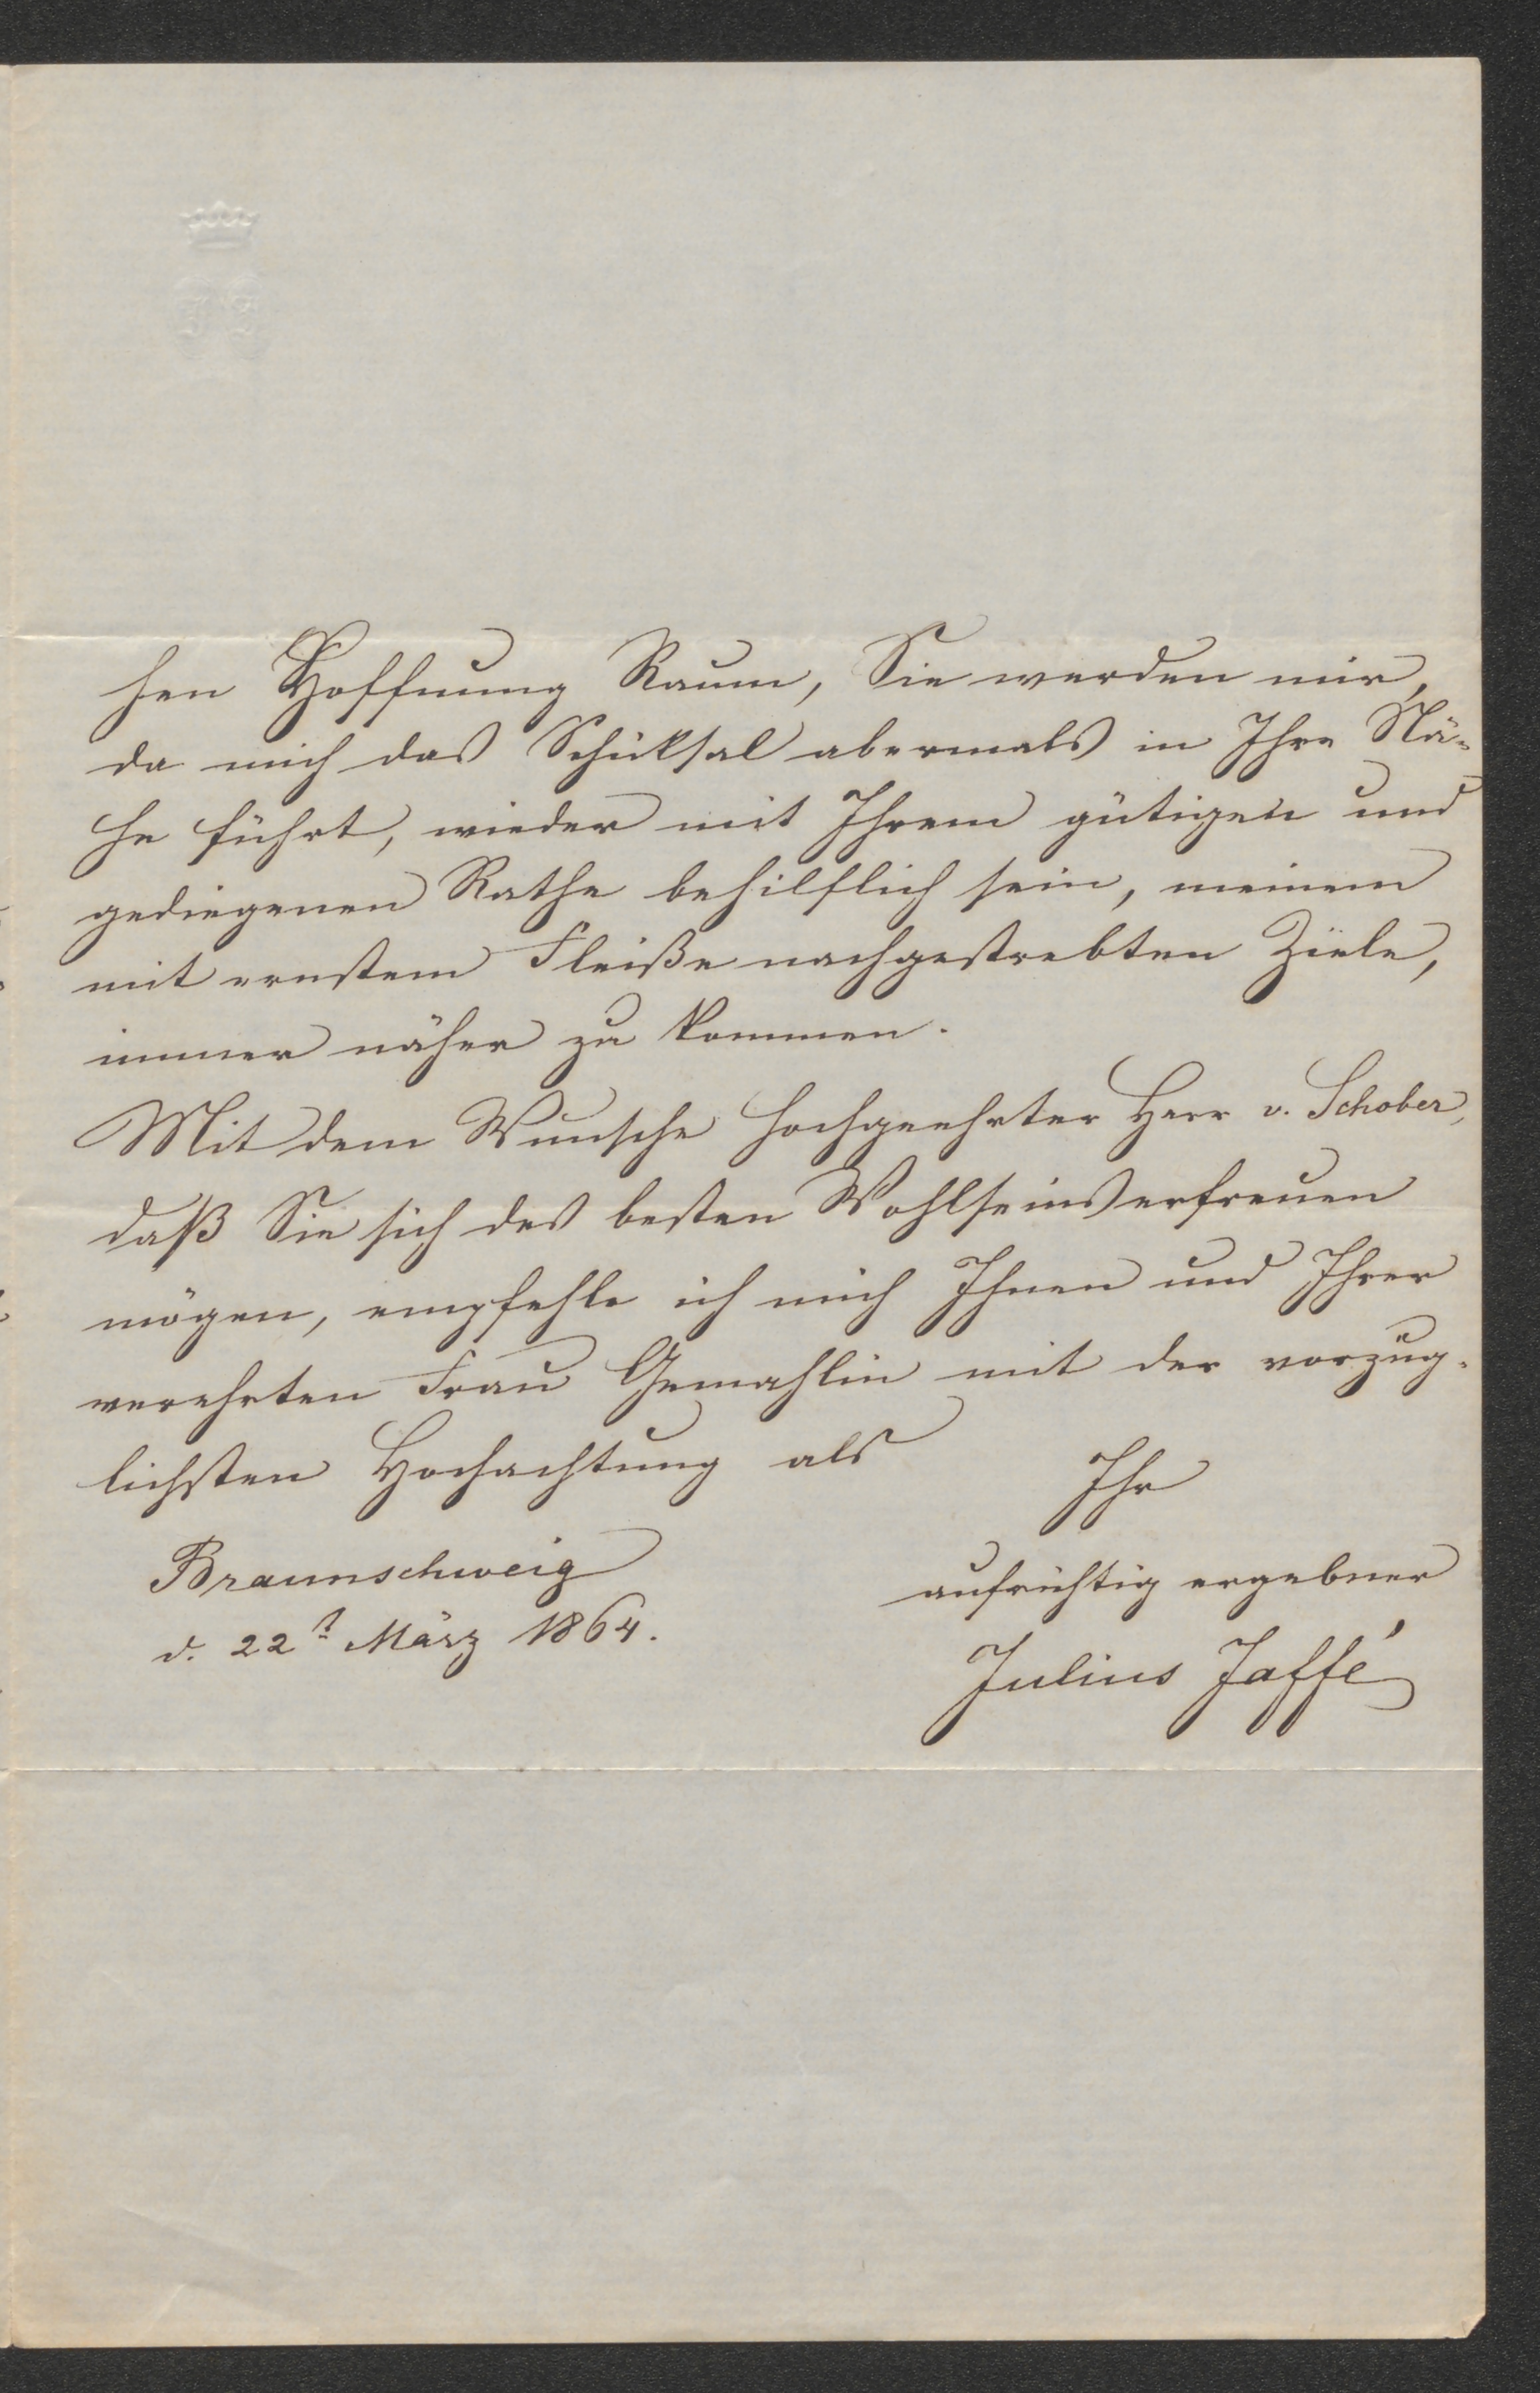 hen Hoffnung Raum, Sie werden mir,
da mich das Schiksal abermals in Ihre Nä-
he führt, wieder mit Ihrem gütigen und
gediegenen Rathe behilflich sein, meinem
mit ernstem Fleiße nachgestrebten Ziele,
immer näher zu kommen.
Mit dem Wunsche hochgeehrter Herr v. Schober,
daß Sie sich des besten Wohlseins erfreuen
mögen, empfehle ich mich Ihnen und Ihrer
verehrten Frau Gemahlin mit der vorzüg-
lichsten Hochachtung als
Ihr
aufrichtig ergebner
Julius Jaffé
Braunschweig
d. 22t März 1864.